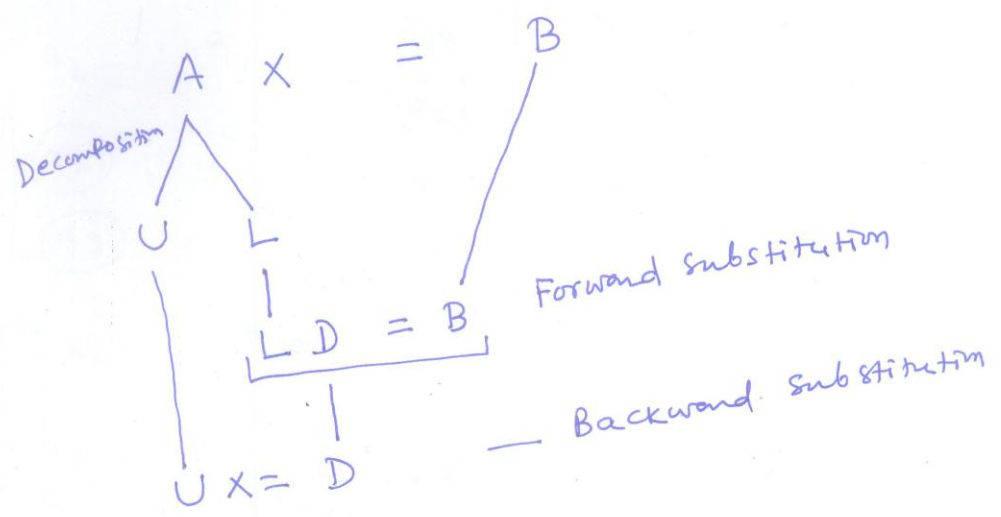 A X = B
Decomposition
U L
L D = B Forward substitution
— Backward substitution
U X = D